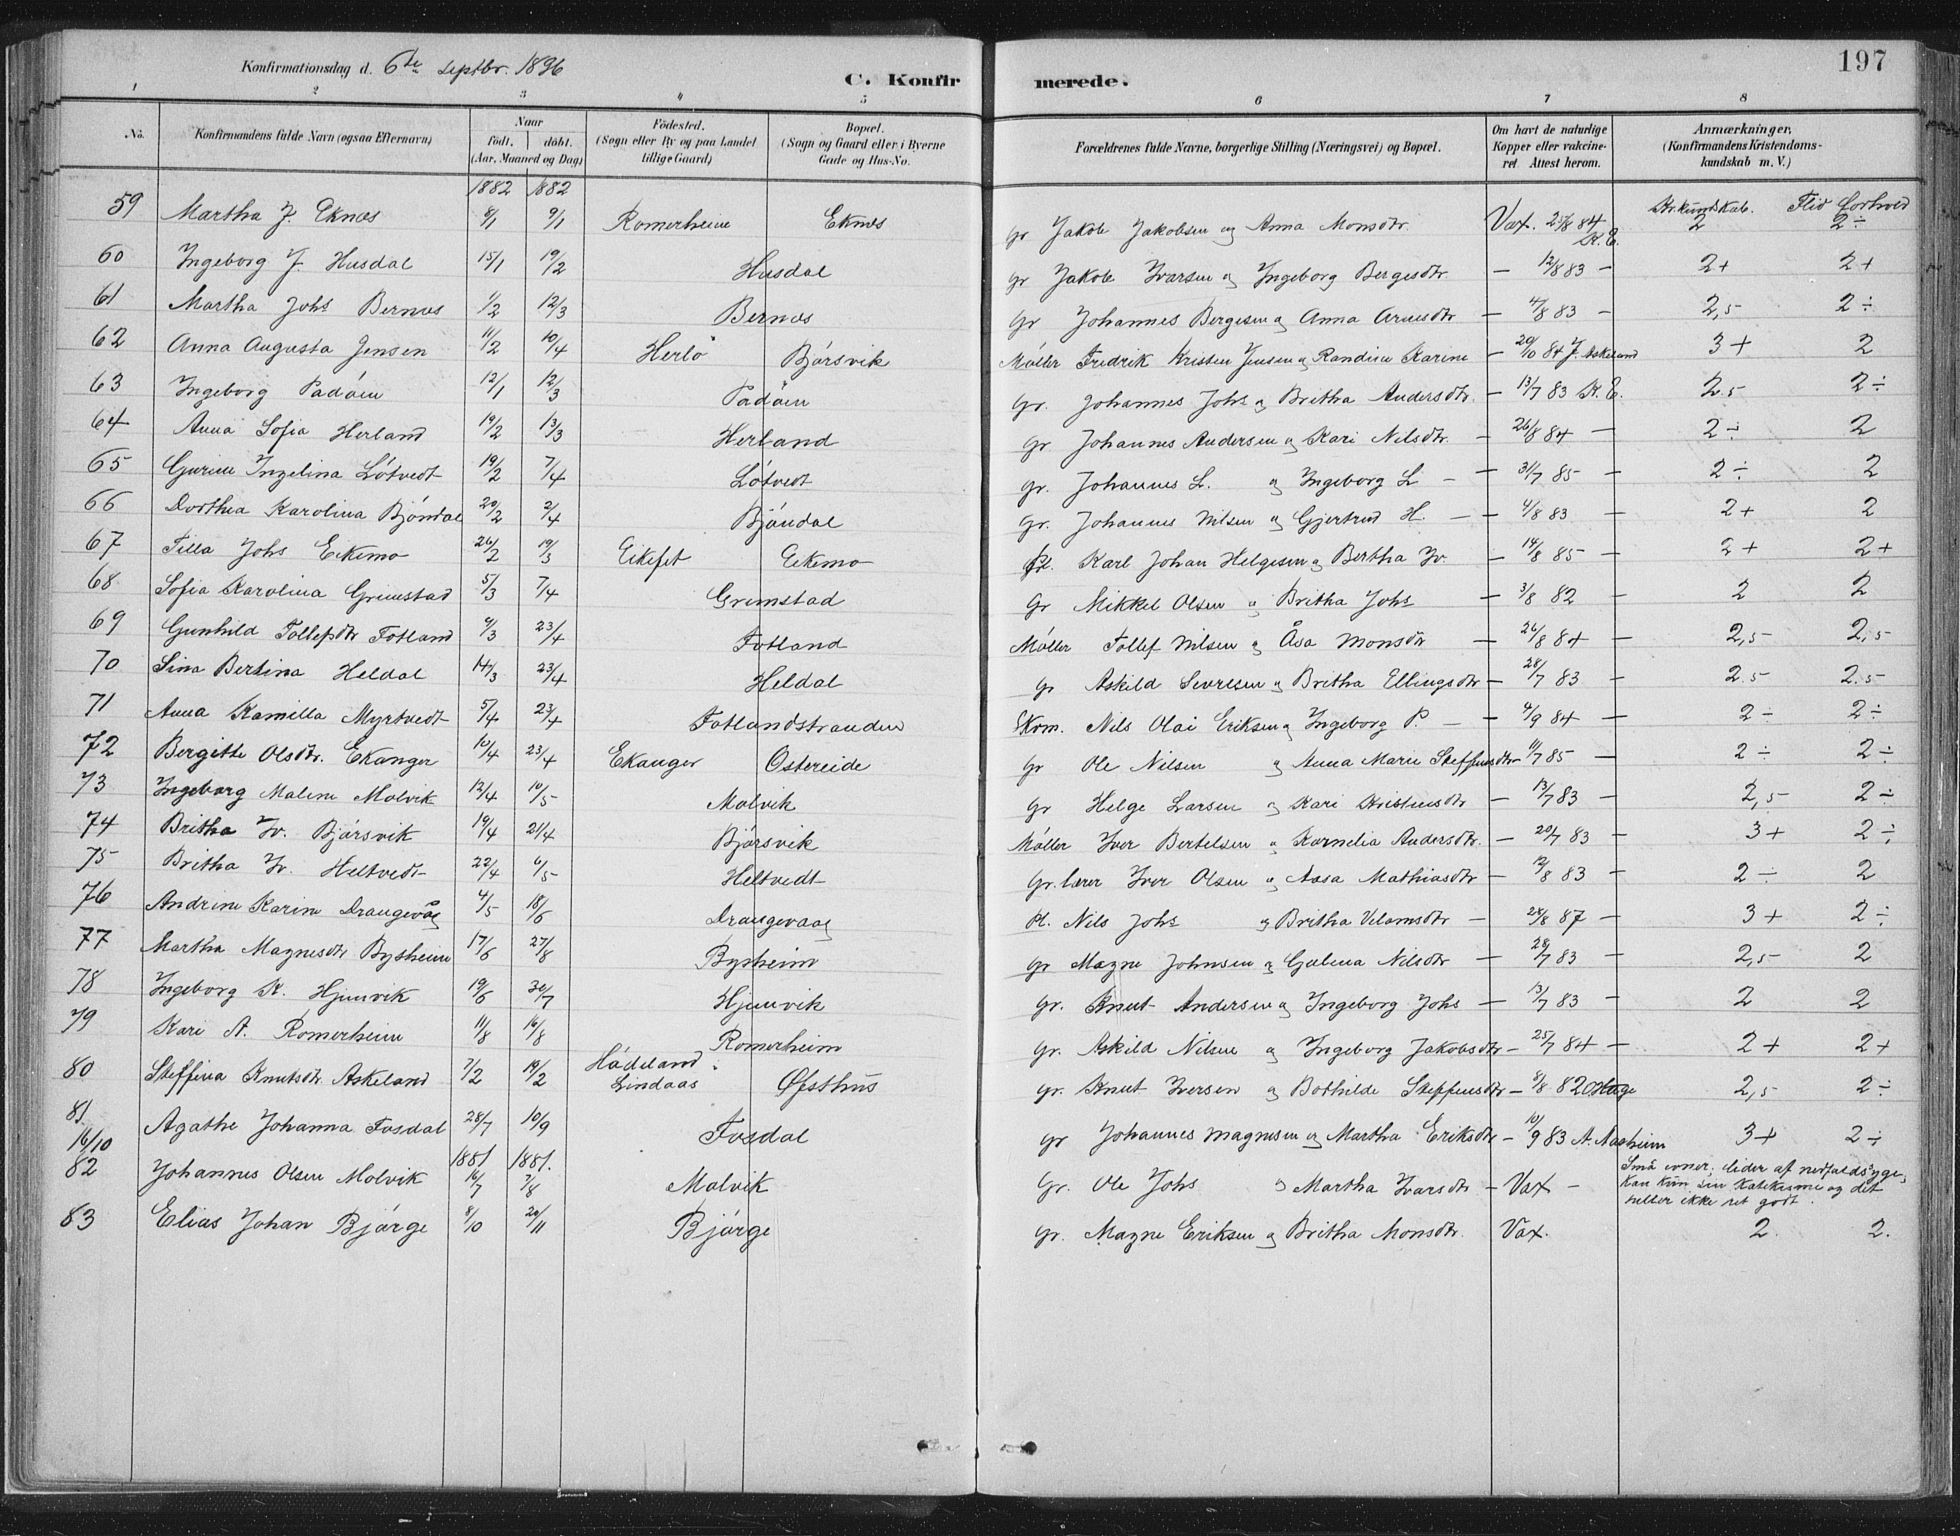 Konfirmationsdag d. 6te septbr. 1896
C. Konfirmerede.
197
1 2 3 4 5 6 7 8
No. | Konfirmandens fulde Navn (ogsaa Efternavn) | Naar födt. döbt. (Aar, Maaned og Dag) | Födested. (Sogn eller By og paa Landet tillige Gaard) | Bopæl. (Sogn og Gaard eller i Byerne Gade og Hus-No. | Forældrenes fulde Navne, borgerlige Stilling (Næringsvei) og Bopæl. | Om havt de naturlige Kopper eller vakcineret. Attest herom. | Anmærkninger. (Konfirmandens Kristendomskundskab m. V.)
1882 1882
Kr.kundskab. Flid &forhold
59 Martha J. Eknæs 8/1 9/1 Romerheim Eknæs Gr Jakob Jakobsen og Anna Monsdtr. Vax. 25/8 84 K.E. 2 2÷
60 Ingeborg J. Husdal 15/1 19/2 Husdal Gr Jakob Ivarsen og Ingeborg Bergesdtr. — 12/8 83 — 2+ 2+
61 Martha Johs Bernæs 1/2 12/3 Bernæs Gr Johannes Bergesen og Anna Arnesdtr — 4/8 83 — 2,5 2÷
62 Anna Augusta Jensen 11/2 10/4 Herlö Bjórsvik Møller Fredrik Kristen Jensen og Randine Karine — 20/10 84 J. Askeland 3+ 2
63 Ingeborg Padóen 12/1 12/3 Padóen Gr. Johannes Johs og Britha Andersdtr. — 13/7 83 K.E. 2.5 2÷
64 Anna Sofia Herland 19/2 13/3 Herland Gr. Johannes Andersen og Kari Nilsdtr. — 26/8 84 — 2÷ 2
65 Gurine Ingelina Lótvedt 19/2 7/4 Lótvedt Gr. Johannes L. og Ingeborg L — 31/7 85 — 2÷ 2
66 Dorthea Karolina Bjóndal 20/2 2/4 Bjóndal Gr. Johannes Nilsen og Gjertrud H. — 4/8 83 — 2+ 2
67 Tilla Johs Eikemo 26/2 19/3 Eikefet Eikemo Pl. Karl Johan Helgesen og Bertha Iv. — 14/8 85 — 2+ 2+
68 Sofia Karolina Grimstad 5/3 7/4 Grimstad Gr Mikkel Olsen og Britha Johs — 3/8 82 — 2 2
69 Gunhild Tollefsdtr Fotland 9/3 23/4 Fotland Møller Tollef Nilsen og Åsa Monsdtr — 26/8 84 — 2,5 2,5
70 Sina Bertina Heldal 14/3 23/4 Heldal Gr Askild Sivrtsen og Britha Ellingsdtr — 28/7 83 — 2.5 2.5
71 Anna Kamilla Myrtvedt 5/4 23/4 Fotlandstranden Skom. Nils Olai Eriksen og Ingeborg P. — 4/9 84 — 2÷ 2÷
72 Bergitte Olsdtr. Ekanger 10/4 23/4 Ekanger Ostereide Gr Ole Nilsen og Anna Marie Steffensdtr — 11/7 85 — 2÷ 2÷
73 Ingeborg Malene Molvik 12/4 10/5 Molvik Gr Helge Larsen og Kari Kristensdtr — 13/7 83 — 2,5 2÷
74 Britha Iv. Bjórsvik 19/4 21/4 Bjórsvik Møller Iver Bertelsen og Kornelia Andersdtr. — 20/7 83 — 3+ 2÷
75 Britha Iv. Heltvedt 22/4 6/5 Heltvedt Gr. lærer Iver Olsen og Aasa Mathiasdtr — 12/8 83 — 2÷ 2
76 Andrine Karine Draugevåg 4/5 18/6 Draugevaag Pl. Nils Johs og Britha Velamsdtr — 28/8 87 — 3+ 2÷
77 Martha Magnesdtr Bysheim 17/6 27/8 Bysheim Gr Magne Johnsen og Gølina Nilsdtr — 28/7 83 — 2,5 2
78 Ingeborg K. Hjemvik 19/6 30/7 Hjemvik Gr. Knut Andersen og Ingeborg Johs — 13/7 83 — 2 2
79 Kari A. Romerheim 11/8 16/8 Romerheim Gr. Askild Nilsen og Ingeborg Jakobsdtr — 25/7 84 — 2+ 2+
80 Steffina Knutsdtr. Askeland 7/2 19/2 Hådeland Lindaas Øfsthus Gr. Knut Iversen og Bothilde Steffensdtr — 8/8 82 O Hage 2,5 2÷
81 Agathe Johanna Fosdal 28/7 10/9 Fosdal Gr Johannes Magnesen og Martha Eriksdtr — 10/9 83 A. Aasheim 3+ 2÷
16/10 1881 1881.
82 Johannes Olsen Molvik 16/7 7/8 Molvik Gr. Ole Johs og Martha Ivarsdtr — Vax — Små evner; lider af nedfaldssyge, kan kun sin Katekisme og det heller ikke ret godt.
83 Elias Johan Bjórge 8/10 20/11 Bjórge Gr. Magne Eriksen og Britha Monsdtr. Vax. 2. 2.